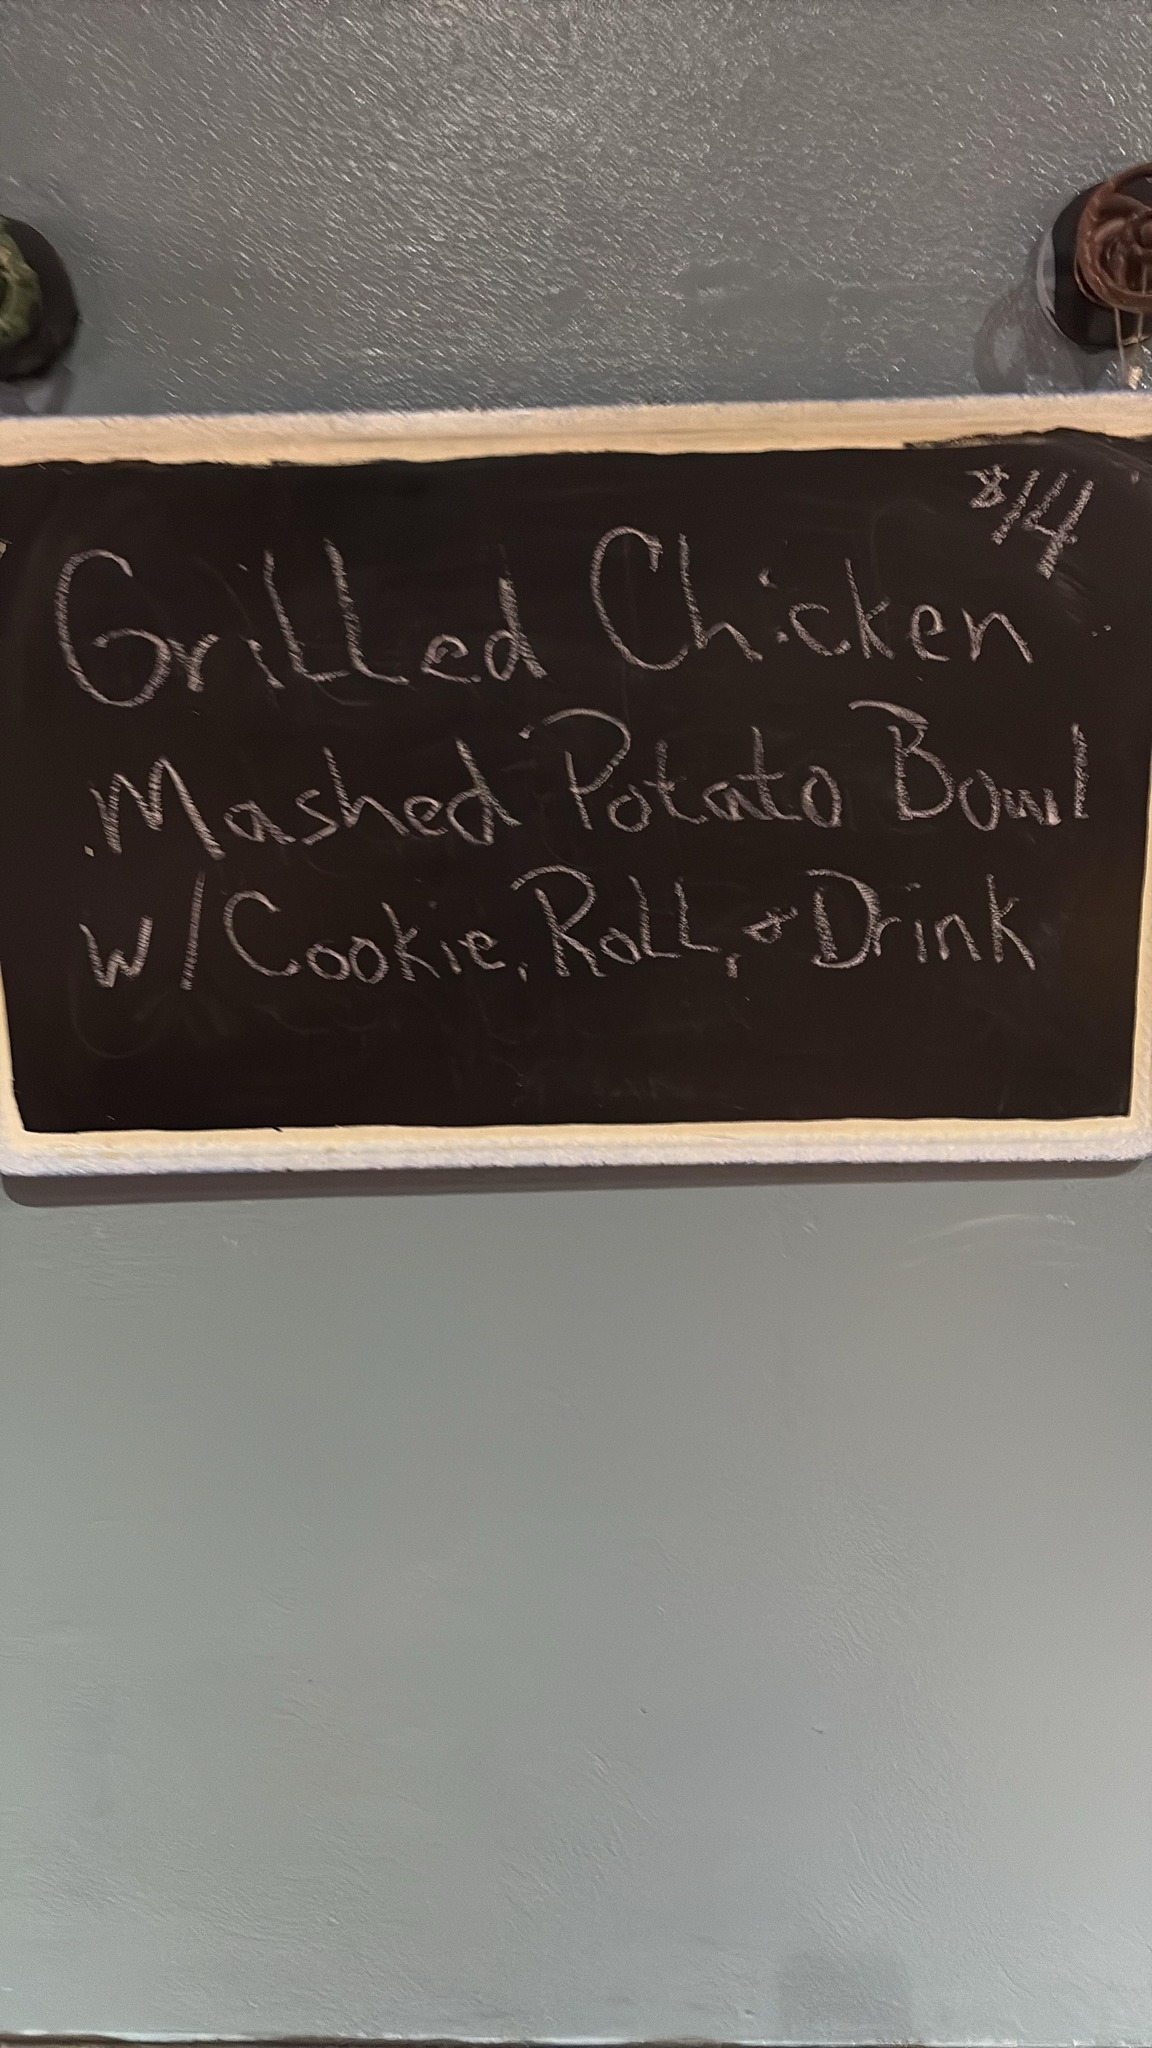 $14
Grilled Chicken
Mashed Potato Bowl
w/ Cookie, Roll, & Drink